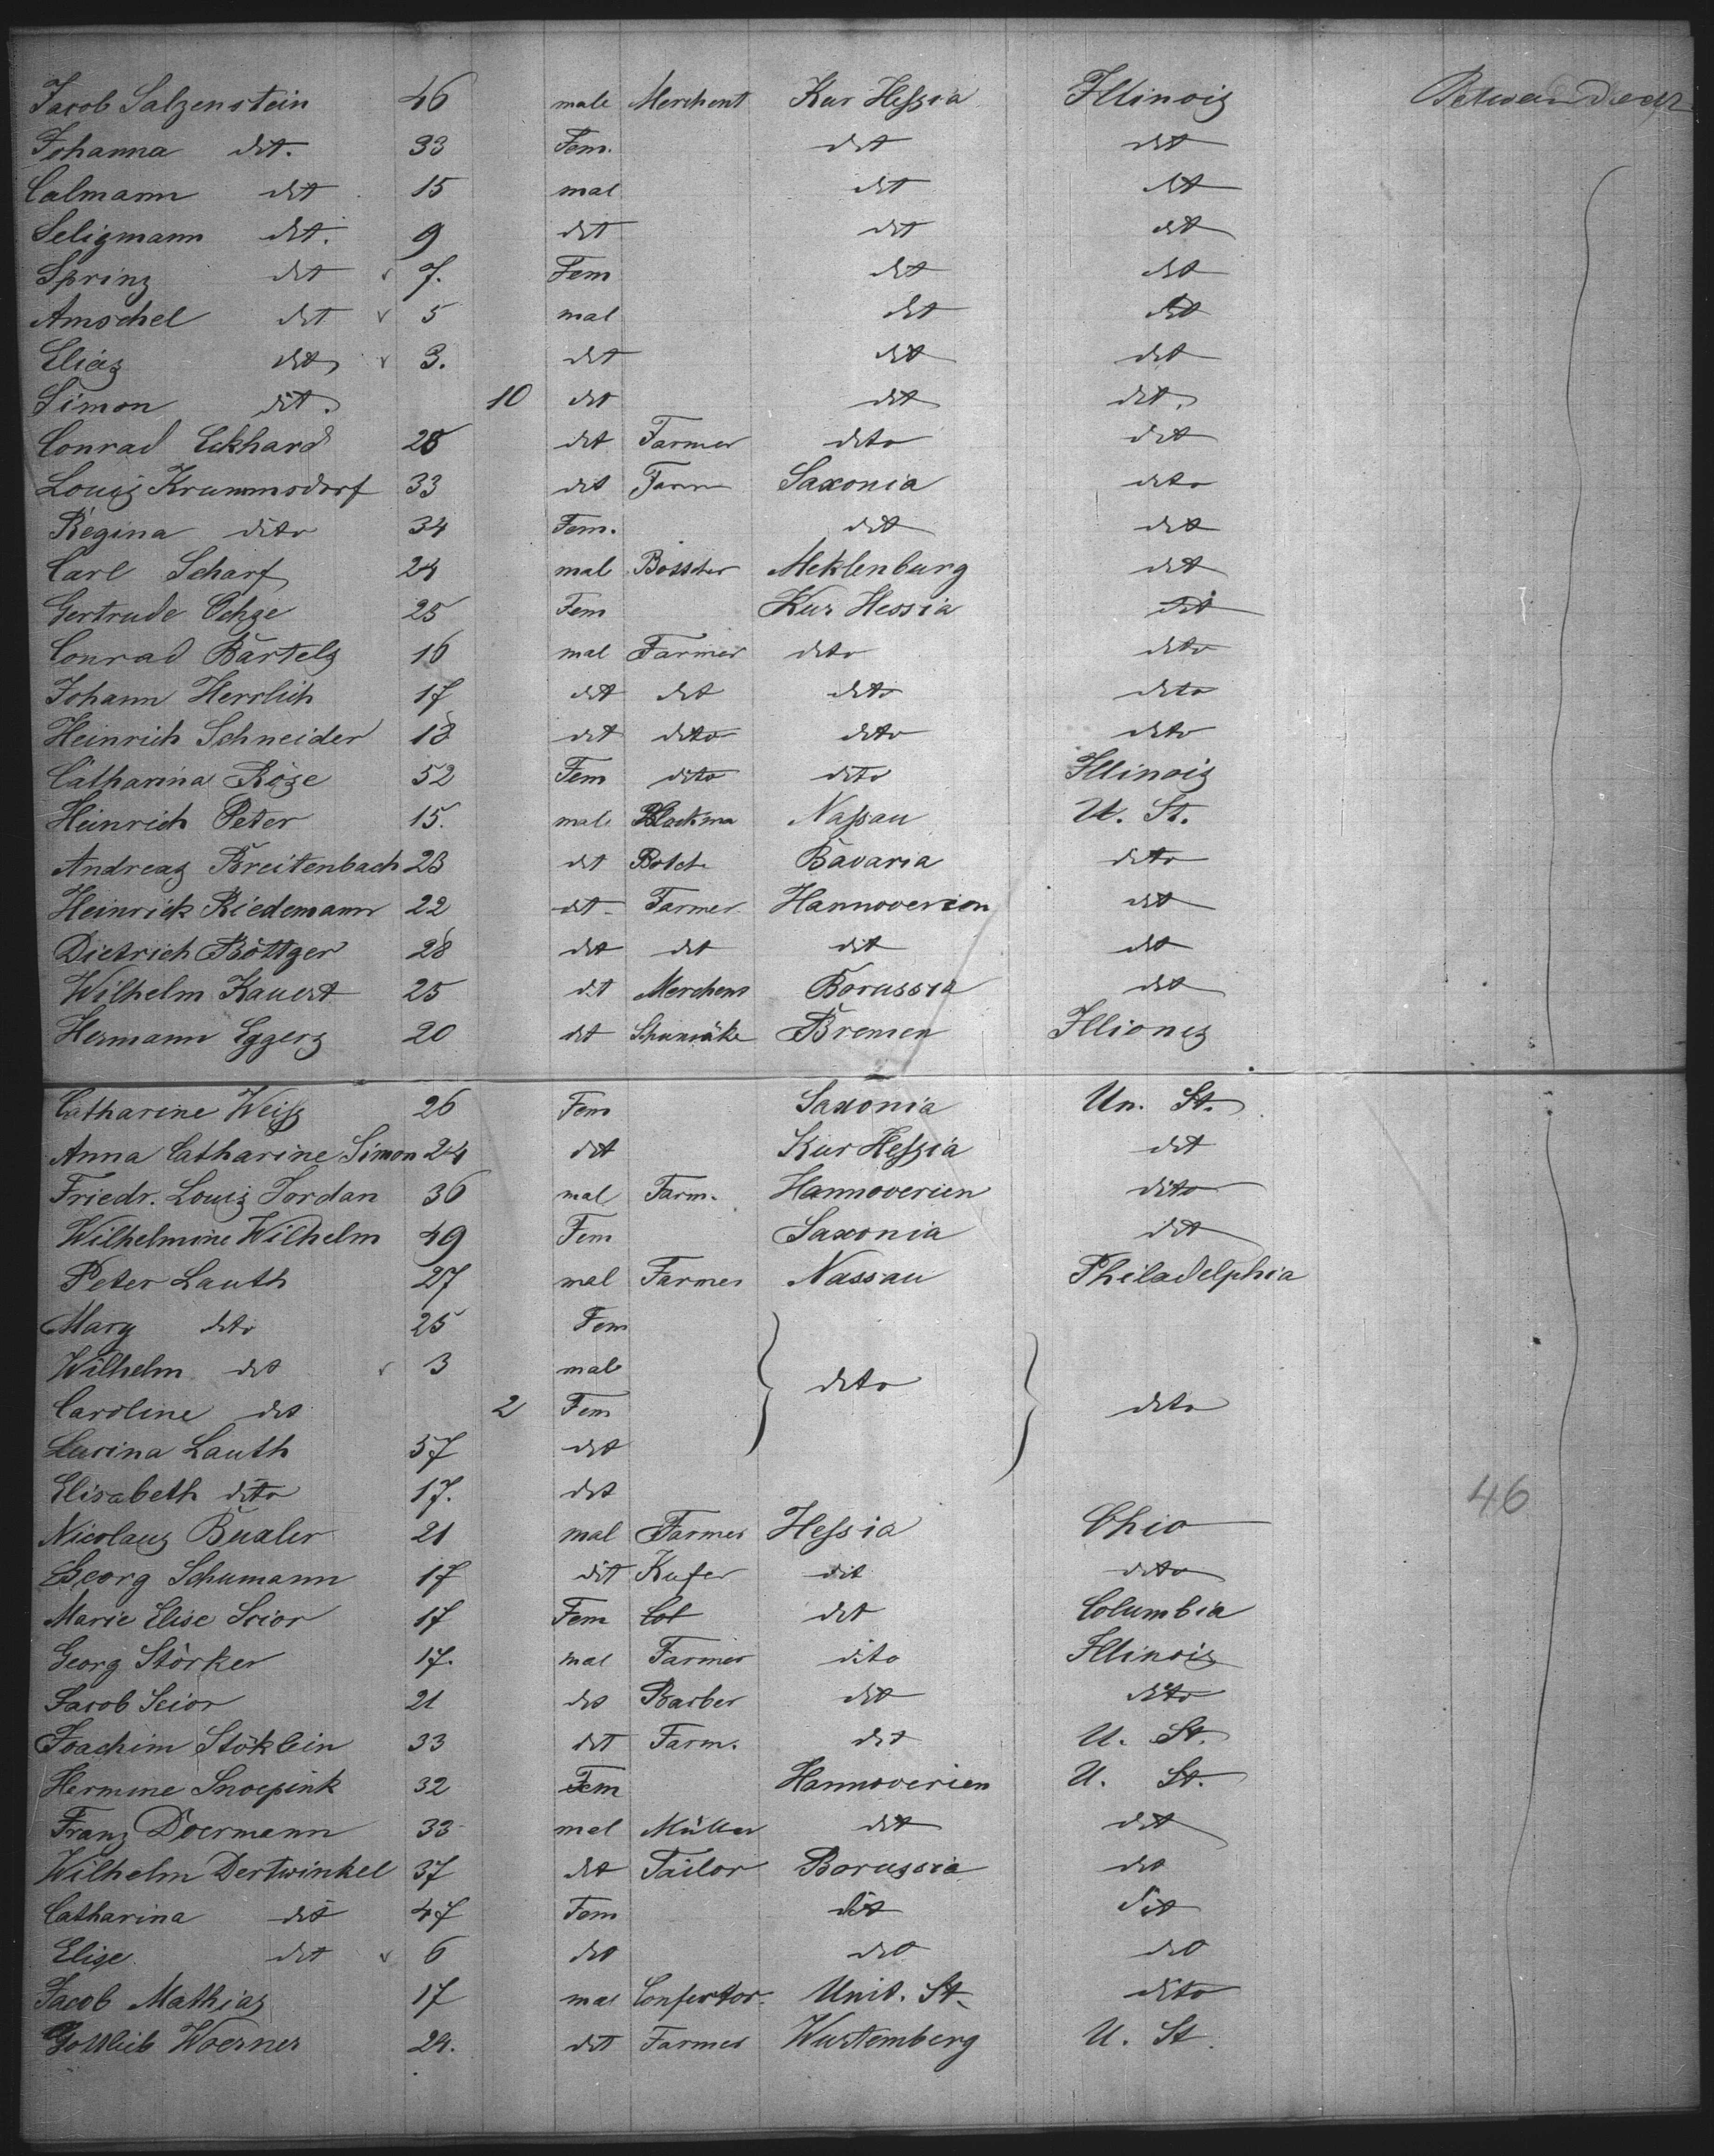 Jacob Salzenstein 46 male Merchent Kur Heßia Illinois Between Deck
Johanna det. 33 Fem. det det
Calmann det 15 mal det det
Seligmann det. 9 det det det
Sprinz det 7. Fem det det
Amschel det 5 mal det det
Elias det 3. det det det
Simon dit. 10 det det det.
Conrad Eckhard 28 det Farmer deto det
Louis Krummsdorf 33 det Farm Saxonia deto
Regina dito 34 Fem. det det
Carl Scharf 24 mal Bottcher Meklenburg det
Gertrude Ochse 25 Fem Kur Hessia det
Conrad Bartels 16 mal Farmer deto deto
Johann Herrlich 17 det det deto deto
Heinrich Schneider 18 det deto deto deto
Catharina Röse 52 Fem deto deto Illinois
Heinrich Peter 15. male Blacksm Naßau U. St.
Andreas Breitenbach 23 det Botch Bavaria deto
Heinrich Riedemann 22 det Farmer Hannoverien det
Dietrich Böttger 28 det det det det
Wilhelm Kauert 25 det Merchent Borussia det
Hermann Eggers 20 det Schumäke Bremen Illiones
Catharine Weiß 26 Fem Saxonia Un. St.
Anna Catharine Simon 24 det Kur Heßia det
Friedr. Louis Jordan 36 mal Farm. Hannoverien dito
Wilhelmine Wilhelm 49 Fem Saxonia det
Peter Lauth 27 mal Farmer Nassau Philadelphia
Mary deto 25 Fem
Wilhelm det 3 male deto
Caroline det 2 Fem deto
Lucina Lauth 57 det
Elisabeth dito 17. det 46
Nicolaus Bualer 21 mal Farmer Heßia Ohio
Georg Schumann 17 dit Kufer dit deto
Marie Elise Scior 17 Fem Col det Columbia
Georg Störker 17. mal Farmer dito Illinois
Jacob Scior 21 det Barber det dito
Joachim Stöklein 33 det Farm. det U. St.
Hermine Snoepink 32 Fem Hannoverien U. St.
Franz Doermann 33 mal Müller det det
Wilhelm Dertwinkel 37 det Tailor Borussia det
Catharina det 47 Fem det det
Elise det 6 det det det
Jacob Mathias 17 mal Confector. Unit. St. dito
Gottlieb Woerner 24. det Farmer Wurtemberg U. St.